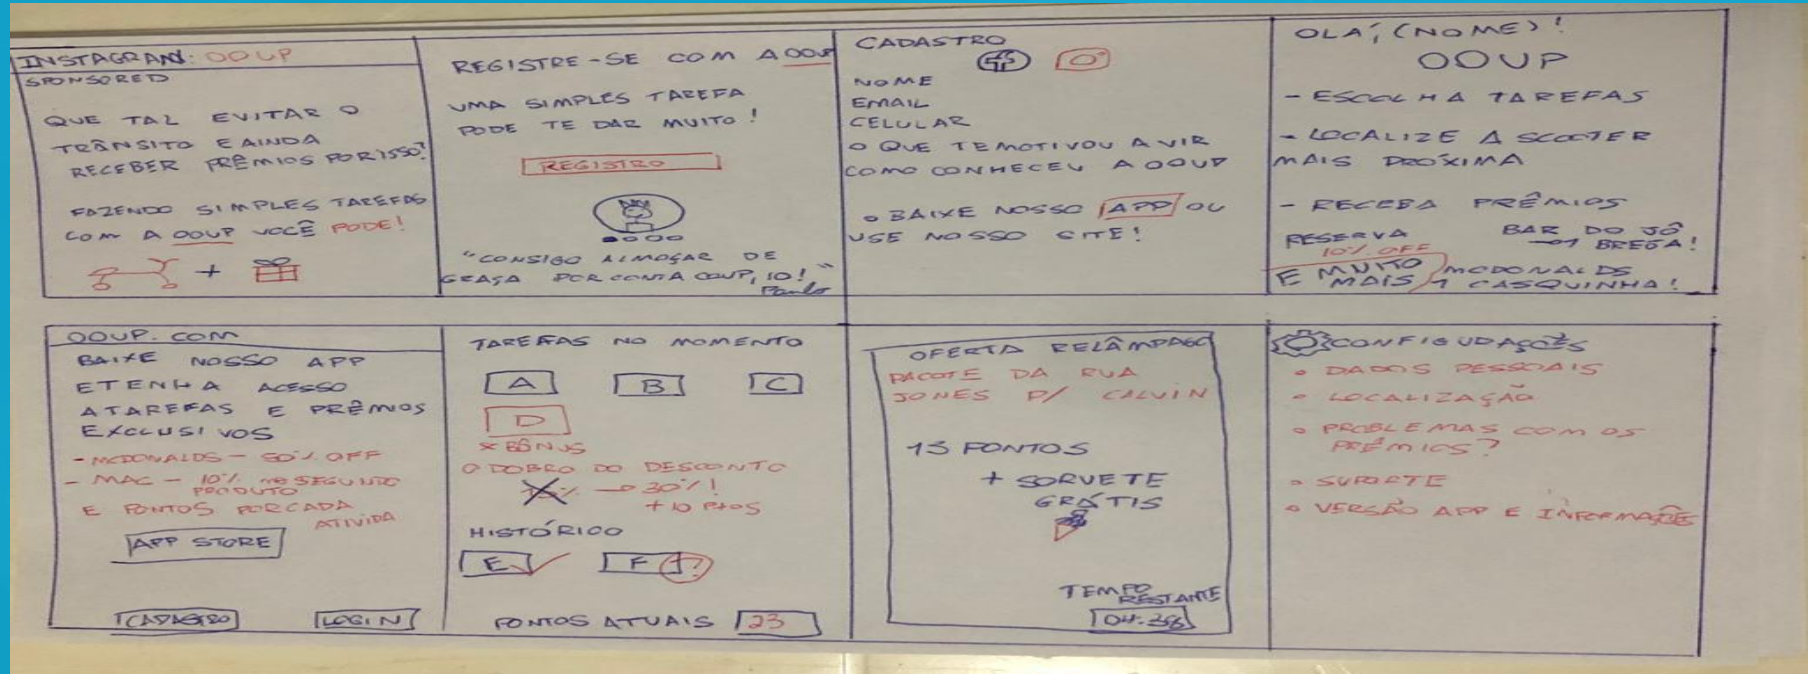 INSTAGRAM: OOUP
SPONSORED
QUE TAL EVITAR O
TRÂNSITO E AINDA
RECEBER PRÊMIOS POR ISSO?
FAZENDO SIMPLES TAREFAS
COM A OOUP VOCÊ PODE!
+
REGISTRE-SE COM A OOUP
UMA SIMPLES TAREFA
PODE TE DAR MUITO!
REGISTRO
"CONSIGO ALMOÇAR DE
GRAÇA POR CONTA OOUP, 10!"
Paulo
CADASTRO
NOME
EMAIL
CELULAR
O QUE TE MOTIVOU A VIR
COMO CONHECEU A OOUP
• BAIXE NOSSO APP OU
USE NOSSO SITE!
OLÁ, (NOME)!
OOUP
- ESCOLHA TAREFAS
- LOCALIZE A SCOOTER
MAIS PRÓXIMA
- RECEBA PRÊMIOS
RESERVA
10% OFF
BAR DO JÔ
BREGA!
E MUITO
MAIS
MCDONALDS
1 CASQUINHA!
OOUP.COM
BAIXE NOSSO APP
E TENHA ACESSO
A TAREFAS E PRÊMIOS
EXCLUSIVOS
- MCDONALDS - 50% OFF
- MAC - 10% NO SEGUNDO
PRODUTO
E PONTOS POR CADA
ATIVIDA
APP STORE
CADASTRO
LOGIN
TAREFAS NO MOMENTO
A B C
D
* BÔNUS
O DOBRO DO DESCONTO
→ 30%!
+ 10 Ptos
HISTÓRICO
E F ?
PONTOS ATUAIS 23
OFERTA RELÂMPAGO
PACOTE DA RUA
JONES P/ CALVIN
13 PONTOS
+ SORVETE
GRÁTIS
TEMPO
RESTANTE
04:38
CONFIGURAÇÕES
• DADOS PESSOAIS
• LOCALIZAÇÃO
• PROBLEMAS COM OS
PRÊMIOS?
• SUPORTE
• VERSÃO APP E INFORMAÇÕES